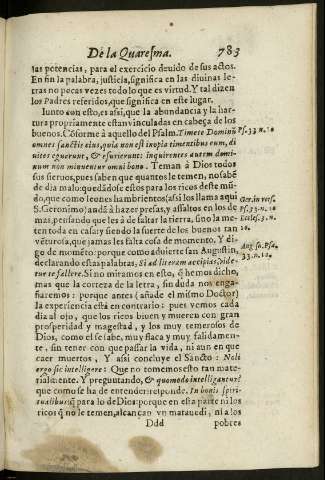 De la Quaresma. 783
las potencias, para el exercicio deuido de sus actos.
En fin la palabra, justicia, significa en las diuinas le-
tras no pocas vezes todo lo que es virtud. Y tal dizen
los Padres referidos, que significa en este lugar.
Iunto con esto, es assi, que la abundancia y la har-
tura propriamente estan vinculadas en cabeça de los
buenos. Cõforme à aquello del Psalm. Timete Dominũ
omnes sanctis eius, quia non est inopia timentibus eum, di
uites eguerunt, & esurierunt: inquirentes autem domi-
num non minuentur omni bono. Teman à Dios todos
sus sieruos, pues saben que quantos le temen, no sabẽ
de dia malo: quedãdose estos para los ricos deste mũ-
do, que como leones hambrientos (assi los llama aqui
S. Geronimo) andã à hazer presas, y assaltos en los de
mas, pensando que les à de faltar la tierra, sino la me-
ten toda en casa: y siendo la suerte de los buenos tan
vẽturosa, que jamas les falta cosa de momento. Y di-
go de momẽto: porque como aduierte san Augustin,
declarando estas palabras, Si ad literam accipias, vide-
tur te fallere. Si no miramos en esto, q̃ hemos dicho,
mas que la corteza de la letra, sin duda nos enga-
ñaremos: porque antes (añade el mismo Doctor)
la experiencia està en contrario: pues vemos cada
dia al ojo, que los ricos biuen y mueren con gran
prosperidad y magestad, y los muy temerosos de
Dios, como el se sabe, muy flaca y muy falidamen-
te, sin tener con que passar la vida, ni aun en que
caer muertos, Y assi concluye el Sancto: Noli
ergo sic intelligere: Que no tomemos esto tan mate-
rialmente. Y preguntando, & quomodo intelligantur?
que como se ha de entender: responde. In bonis spiri-
tualibus: q̃ para lo de Dios: porque en esta parte ni los
ricos q̃ no le temen, alcançan vn marauedi, ni a los
Ddd pobres
Psf. 33. n. 10
Ger. in vers.
Psf. 33. n. 10
Eccles. 5. n.
10.
Aug. sb. Psa.
33. n. 10.